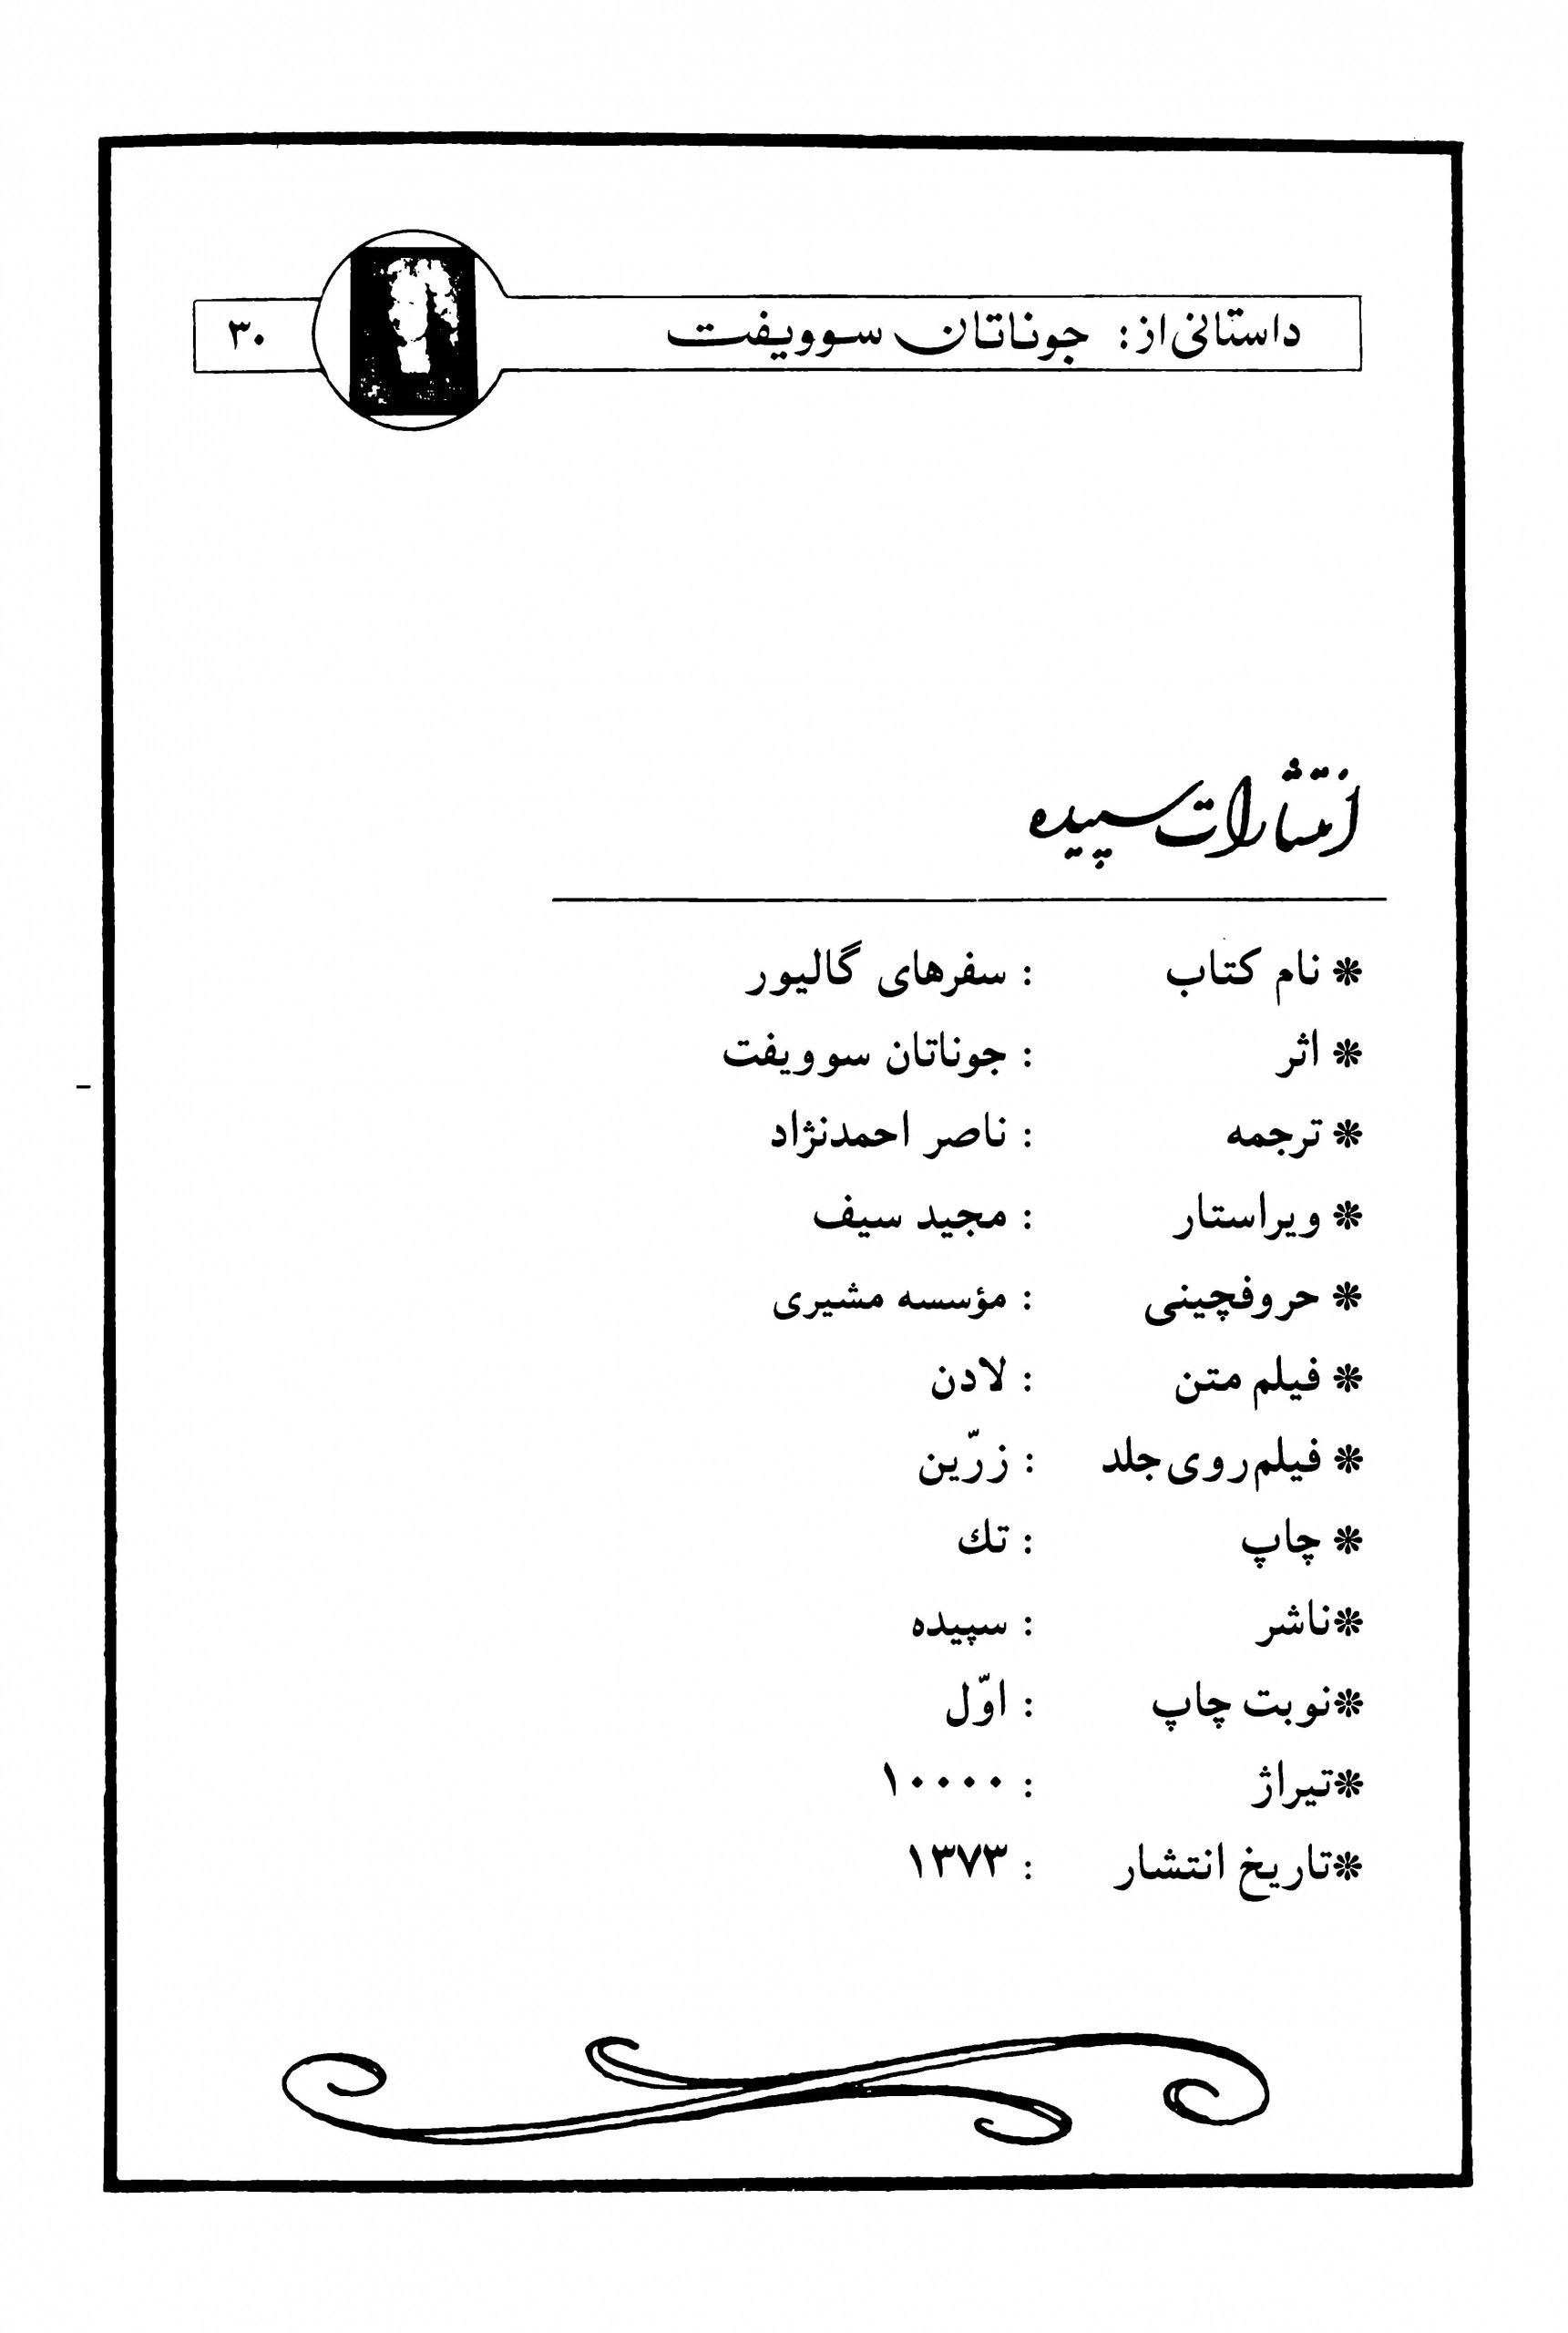 داستانی از: جوناتان سوویفت ۳۰
انتشارات سپیده
* نام کتاب : سفرهای گالیور
* اثر : جوناتان سوویفت
* ترجمه : ناصر احمدنژاد
* ویراستار : مجید سیف
* حروفچینی : مؤسسه مشیری
* فیلم متن : لادن
* فیلم روی جلد : زرّین
* چاپ : تك
* ناشر : سپیده
* نوبت چاپ : اوّل
* تیراژ : ۱۰۰۰۰
* تاریخ انتشار : ۱۳۷۳